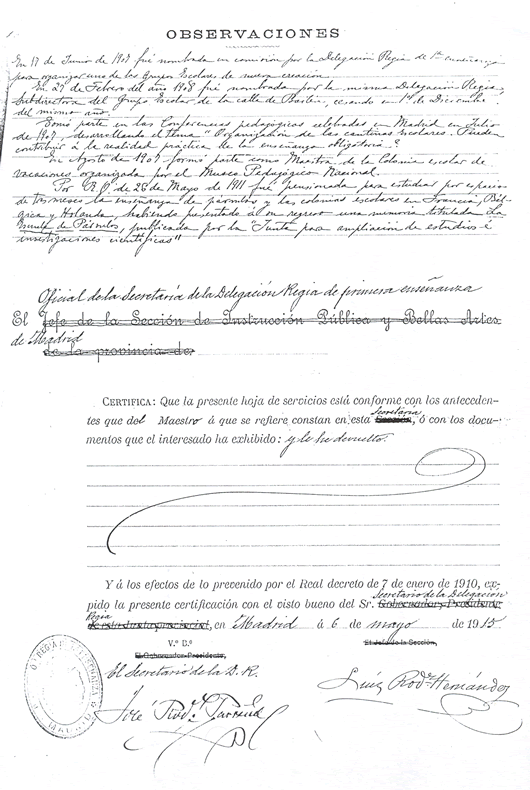 OBSERVACIONES
En 17 de Junio de 1907 fué nombrada en comisión por la Delegación Regia de 1ª enseñanza
para organizar uno de los Grupos Escolares de nueva creación.
En 27 de Febrero del año 1908 fué nombrada por la misma Delegación Regia,
Subdirectora del Grupo Escolar de la calle de Bailén, cesando en 1º de Diciembre
del mismo año.
Tomó parte en las Conferencias pedagógicas celebradas en Madrid en Julio
de 1907, desarrollando el tema "Organización de las cantinas escolares. Pueden
contribuir á la realidad práctica de la enseñanza obligatoria?
En Agosto de 1907 formó parte como Maestra de la Colonia escolar de
vacaciones organizada por el Museo Pedagógico Nacional.
Por R.O. de 28 de Mayo de 1911 fué pensionada para estudiar por espacio
de tres meses la enseñanza de párvulos y las colonias escolares en Francia, Bél-
gica y Holanda, habiendo presentado á su regreso una memoria titulada La
Escuela de Párvulos, publicada por la "Junta para ampliación de estudios é
investigaciones científicas"
Oficial de la Secretaría de la Delegación Regia de primera enseñanza
El Jefe de la Sección de Instrucción Pública y Bellas Artes
de Madrid
de la provincia de
CERTIFICA: Que la presente hoja de servicios está conforme con los anteceden-
Secretaría
tes que del Maestro á que se refiere constan en esta Sección, ó con los docu-
mentos que el interesado ha exhibido: y le he devuelto.
Y á los efectos de lo prevenido por el Real decreto de 7 de enero de 1910, ex-
Secretario de la Delegación
pido la presente certificación con el visto bueno del Sr. Gobernador-Presidente
Regia
de esta Junta provincial, en Madrid á 6 de mayo de 1915
V.º B.º
El Gobernador-Presidente,
El Jefe de la Sección,
El Secretario de la D. R.
José Rodr.
Luis Rodr. Hernández